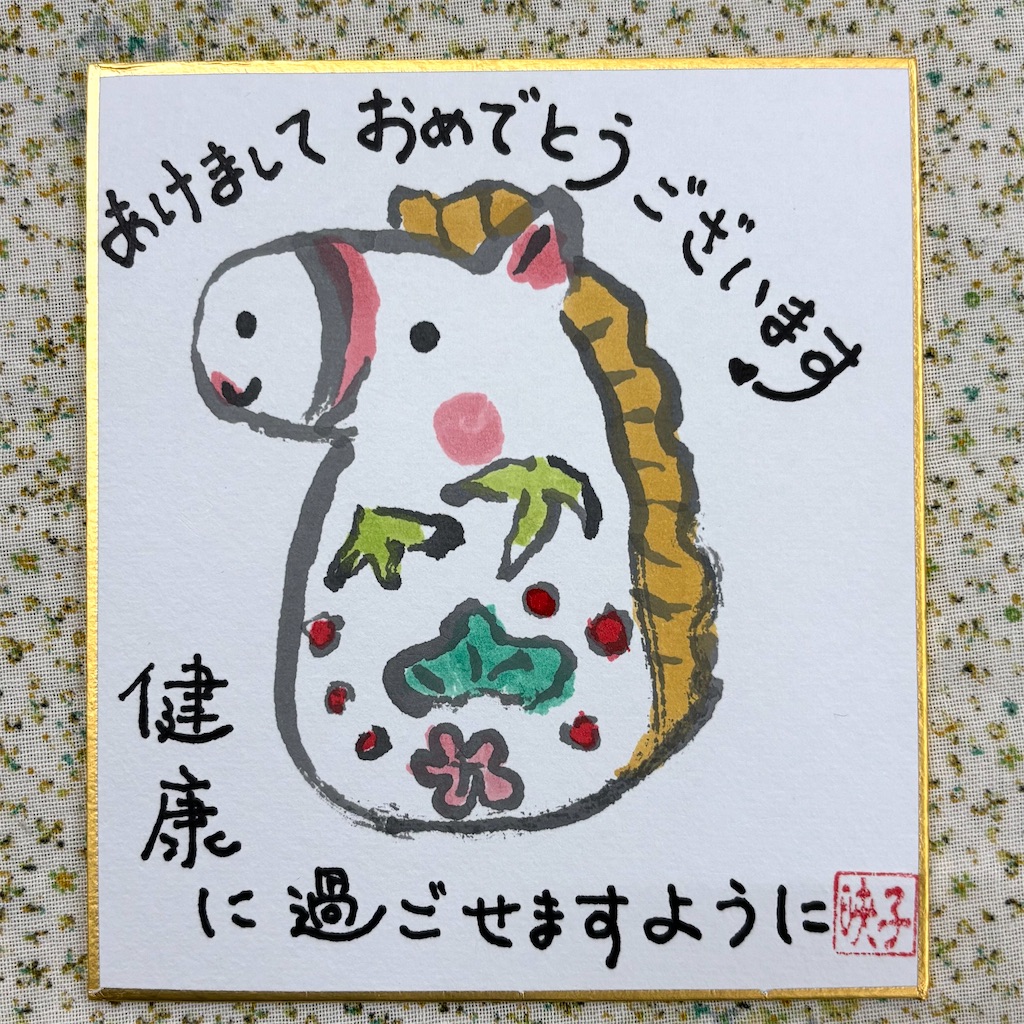 あけまして おめでとう ございます
健康
に過ごせますように
映子